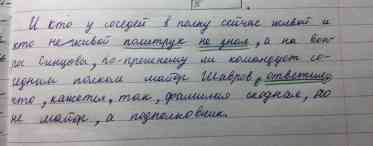 И кто у соседей в полку сейчас живой и
кто не живой политрук не знал, а на воп-
рос Синцова, по-прежнему ли командует со-
седним полком майор Шавров, ответил,
что, кажется, так, фамилия сходная, но
не майор, а подполковник.